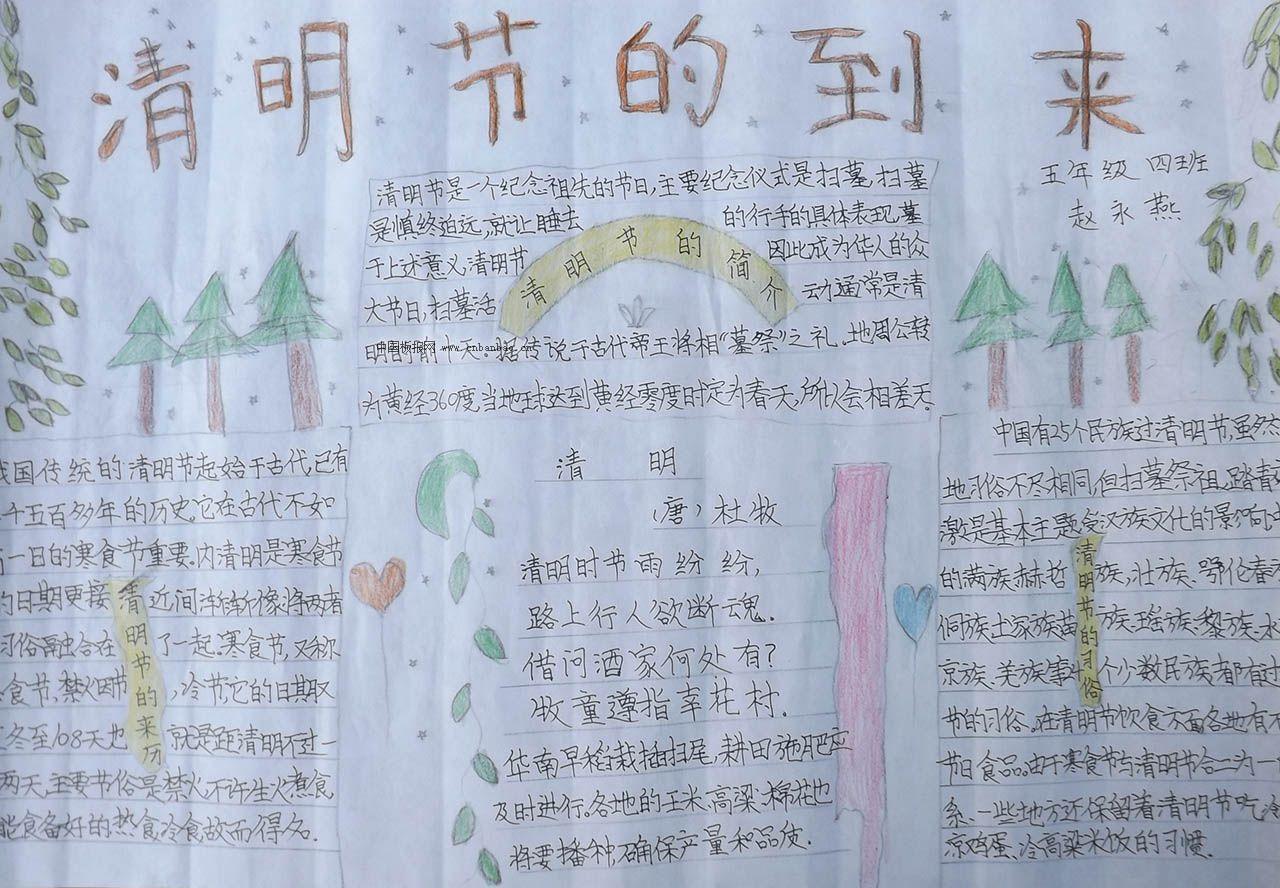 清明节的到来
五年级 四班
赵永燕
清明节是一个纪念祖先的节日,主要纪念仪式是扫墓,扫墓
是慎终迫远,就让睡去的行手的具体表现,墓
于上述意义,清明节因此成为华人的众
大节日,扫墓活动通常是清
明
天。据传说于古代帝王将相“墓祭”之礼,地周公转
为黄经360度,当地球达到黄经零度时定为春天,所以会相差天。
清明节的简介
中国板报网 www.cnbanbao.cn
国传统的清明节起始于古代,已有
千五百多年的历史,它在古代不如
一日的寒食节重要.内清明是寒食节
日期更接近间渐渐像将两者
习俗融合在了一起.寒食节,又称
食节,禁火四节,冷节它的日期取
冬至108天也就是距清明不过一
两天,主要节俗是禁火,不许生火煮食
能食备好的热食冷食故而得名.
清明节的来历
清 明
(唐)杜牧
清明时节雨纷纷,
路上行人欲断魂.
借问酒家何处有?
牧童遵指幸花村.
华南早稻栽插扫尾,耕田施肥应
及时进行。各地的玉米、高梁、棉花也
将要播种,确保产量和品皮.
中国有25个民族过清明节,虽然
地习俗不尽相同,但扫墓祭祖、踏青
激是基本主题受汉族文化的影响,
的满族、赫哲族,壮族、鄂伦春
侗族、土家族、族、瑶族、黎族、水
京族、羌族等个少数民族者都有过
节的习俗。在清明节饮食方面各地有不
节日食品。由于寒食节与清明节合一为一
系、一些地方还保留着清明节吃冷
京鸡蛋、冷高粱米饭的习惯.
清明节的习俗